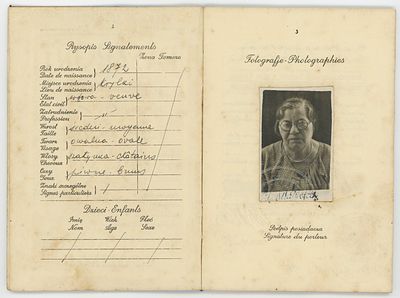 2
Rysopis Signalements
Żona Femme
Rok urodzenia
Date de naissance
1872
Miejsce urodzenia
Lieu de naissance
Stan
Etat civil
wdowa - veuve
Zatrudnienie
Profession
Wzrost
Taille
średni - moyenne
Twarz
Visage
owalna - ovale
Włosy
Cheveux
szatynka - châtains
Oczy
Yeux
piwne - bruns
Znaki szczególne
Signes particuliers
Dzieci - Enfants
Imię Wiek Płeć
Nom Age Sexe
3
Fotografje - Photographies
Podpis posiadacza
Signature du porteur